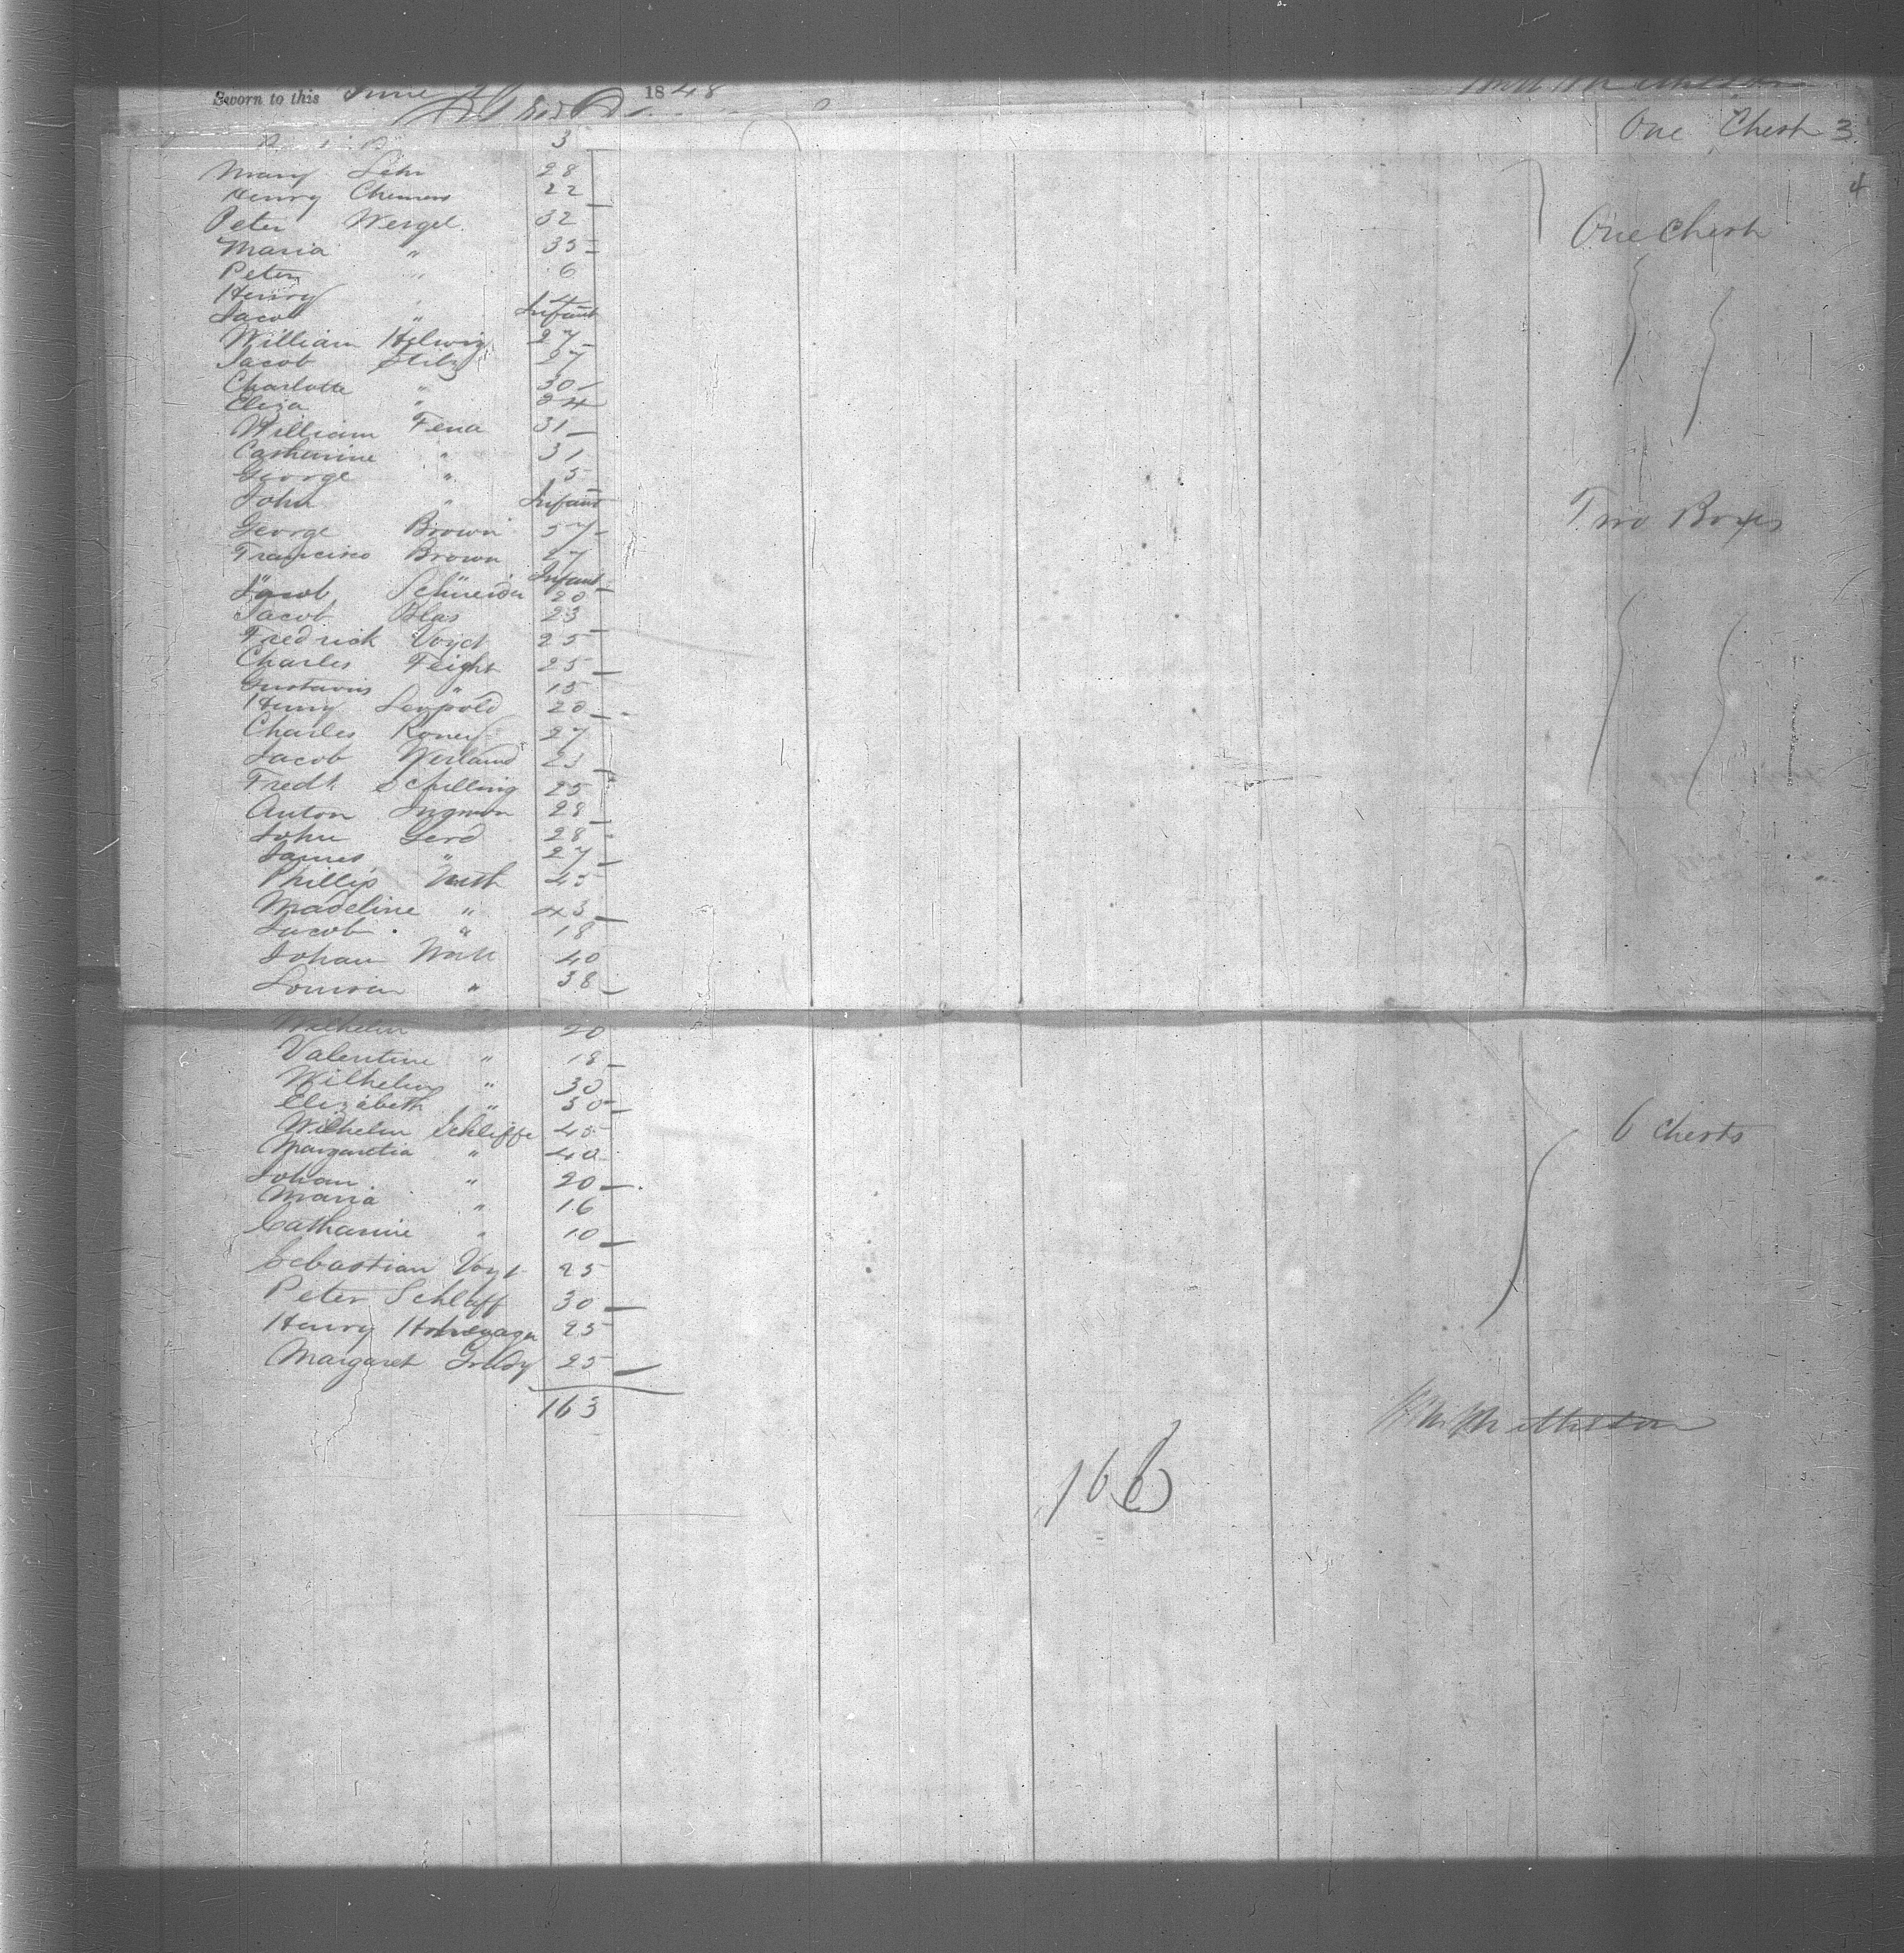 Sworn to this June 1848
One Chest 3
3
4
Mary Lehr 28
Henry Chemers 22
Peter Wergel 32
One Chest
Maria " 35
Peter " 6
Henry " 4
Jacob " Infant
William Helwig 27
Jacob Stilz 27
Charlotte " 30
Eliza " 24
William Fena 31
Catharine " 31
George " 5
John " Infant
Two Boxes
George Brown 57
Francisco Brown 27
" " Infant
Jacob Schneider 20
Jacob Blas 23
Fredrick Voyct 25
Charles Feight 25
Gustavus " 15
Henry Leopold 20
Charles Roney 27
Jacob Werland 23
Fredk Schilling 25
Anton Ingmon 28
John Gerd 28
James " 27
Phillip Nash 45
Madeline " 43
Jacob " 18
Johan 40
Louisa " 38
Wilhelm 20
Valentine " 18
Wilhelm " 30
Elizabeth " 30
Wilhelm Schliffe 45
6 Chests
Margaretia " 40
Johan " 20
Maria " 16
Catharine " 10
Sebastian Voyt 25
Peter Schlaff 30
Henry 25
Margaret Grady 25
163
166